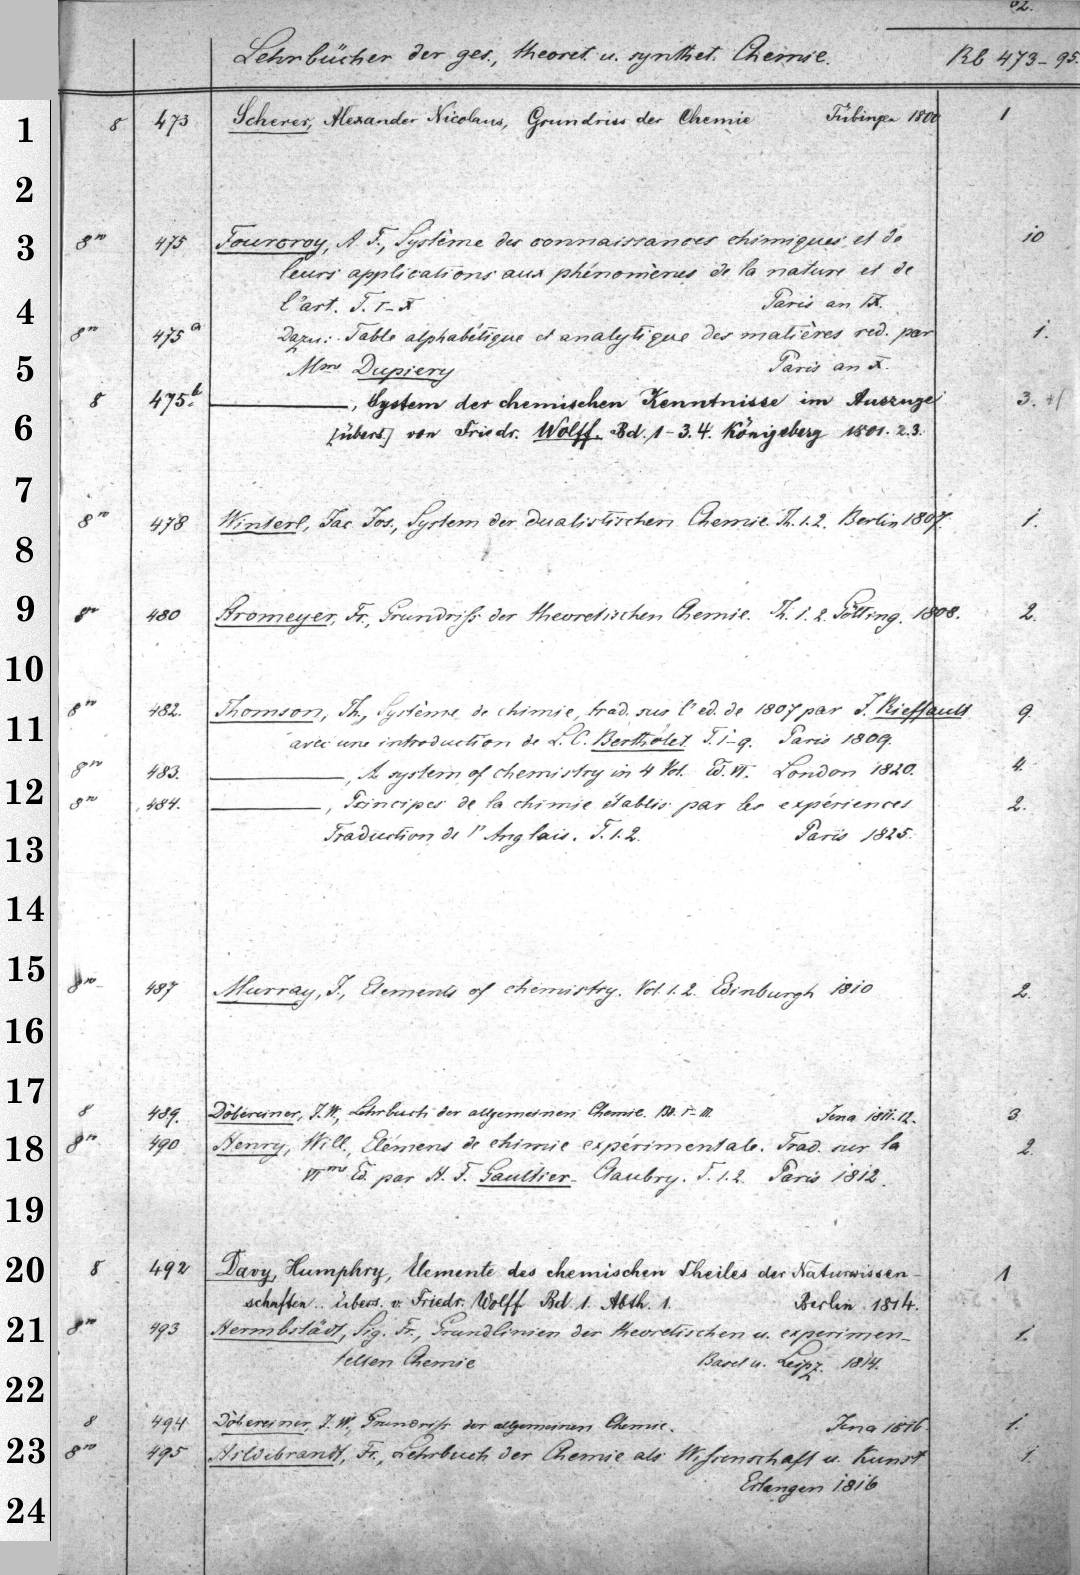 62.
Lehrbücher der ges., theoret. u. synthet. Chemie. Rb 473-95.
8 473 Scherer, Alexander Nicolaus, Grundriss der Chemie Tübingen 1800 1
8vo 475 Fourcroy, A. F., Système des connaissances chimiques et de 10
leurs applications aux phénomènes de la nature et de
l'art. T. I-X Paris an IX.
8vo 475a Dazu: Table alphabétique et analytique des matières red. par 1.
Mme Dupiery Paris an X.
8 475b. ———, System der chemischen Kenntnisse im Auszuge 3.
[übers.] von Friedr. Wolff. Bd. 1-3.4. Königsberg 1801.2.3.
8vo 478 Winterl, Jac. Jos., System der dualistischen Chemie. Th. 1.2. Berlin 1807. 1.
8vo 480 Stromeyer, Fr., Grundriß der theoretischen Chemie. Th. 1.2. Götting. 1808. 2.
8vo 482. Thomson, Th., Système de chimie, trad. sur l'ed. de 1807 par J. Rieffault 9
avec une introduction de L. C. Berthölet T. 1-9. Paris 1809.
8vo 483. ———, A system of chemistry in 4 Vol. Ed. VI. London 1820. 4.
8vo 484. ———, Principes de la chimie établis par les expériences 2.
Traduction de l'Anglais. T. 1.2. Paris 1825.
8vo 487 Murray, J., Elements of chemistry. Vol. 1.2. Edinburgh 1810 2.
8 489. Döbereiner, J. W., Lehrbuch der allgemeinen Chemie. Bd. I-III. Jena 1811.12. 3
8vo 490 Henry, Will., Elémens de chimie expérimentale. Trad. sur la 2.
VIme Ed. par H. F. Gaultier-Claubry. T. 1.2. Paris 1812.
8 492 Davy, Humphry, Elemente des chemischen Theiles der Naturwissen- 1
schaften.. übers. v. Friedr. Wolff Bd. 1. Abth. 1. Berlin 1814.
8vo 493 Hermbstädt, Sig. Fr., Grundlinien der theoretischen u. experimen- 1.
tellen Chemie Basel u. Leipz. 1814.
8 494 Döbereiner, J. W., Grundriß der allgemeinen Chemie. Jena 1816. 1.
8vo 495 Hildebrandt, Fr., Lehrbuch der Chemie als Wissenschaft u. Kunst 1.
Erlangen 1816
1
2
3
4
5
6
7
8
9
10
11
12
13
14
15
16
17
18
19
20
21
22
23
24